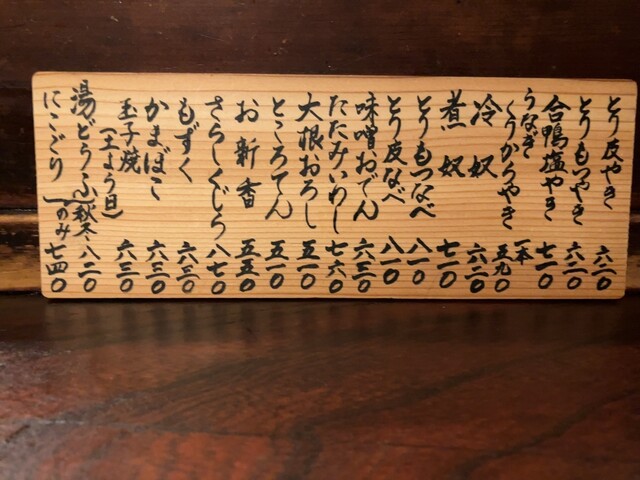 とり皮やき 六一〇
とりもつやき 六一〇
合鴨塩やき 七一〇
うなぎくりからやき 一本 五九〇
冷奴 六三〇
煮奴 七一〇
とりもつなべ 八一〇
とり皮なべ 八一〇
味噌おでん 六三〇
たたみいわし 七六〇
大根おろし 五一〇
ところてん 五一〇
お新香 五五〇
さらしくじら 八七〇
もずく 六三〇
かまぼこ 六三〇
玉子焼(土よう日) 六三〇
湯どうふ 秋冬 八二〇
にこごり のみ 七四〇